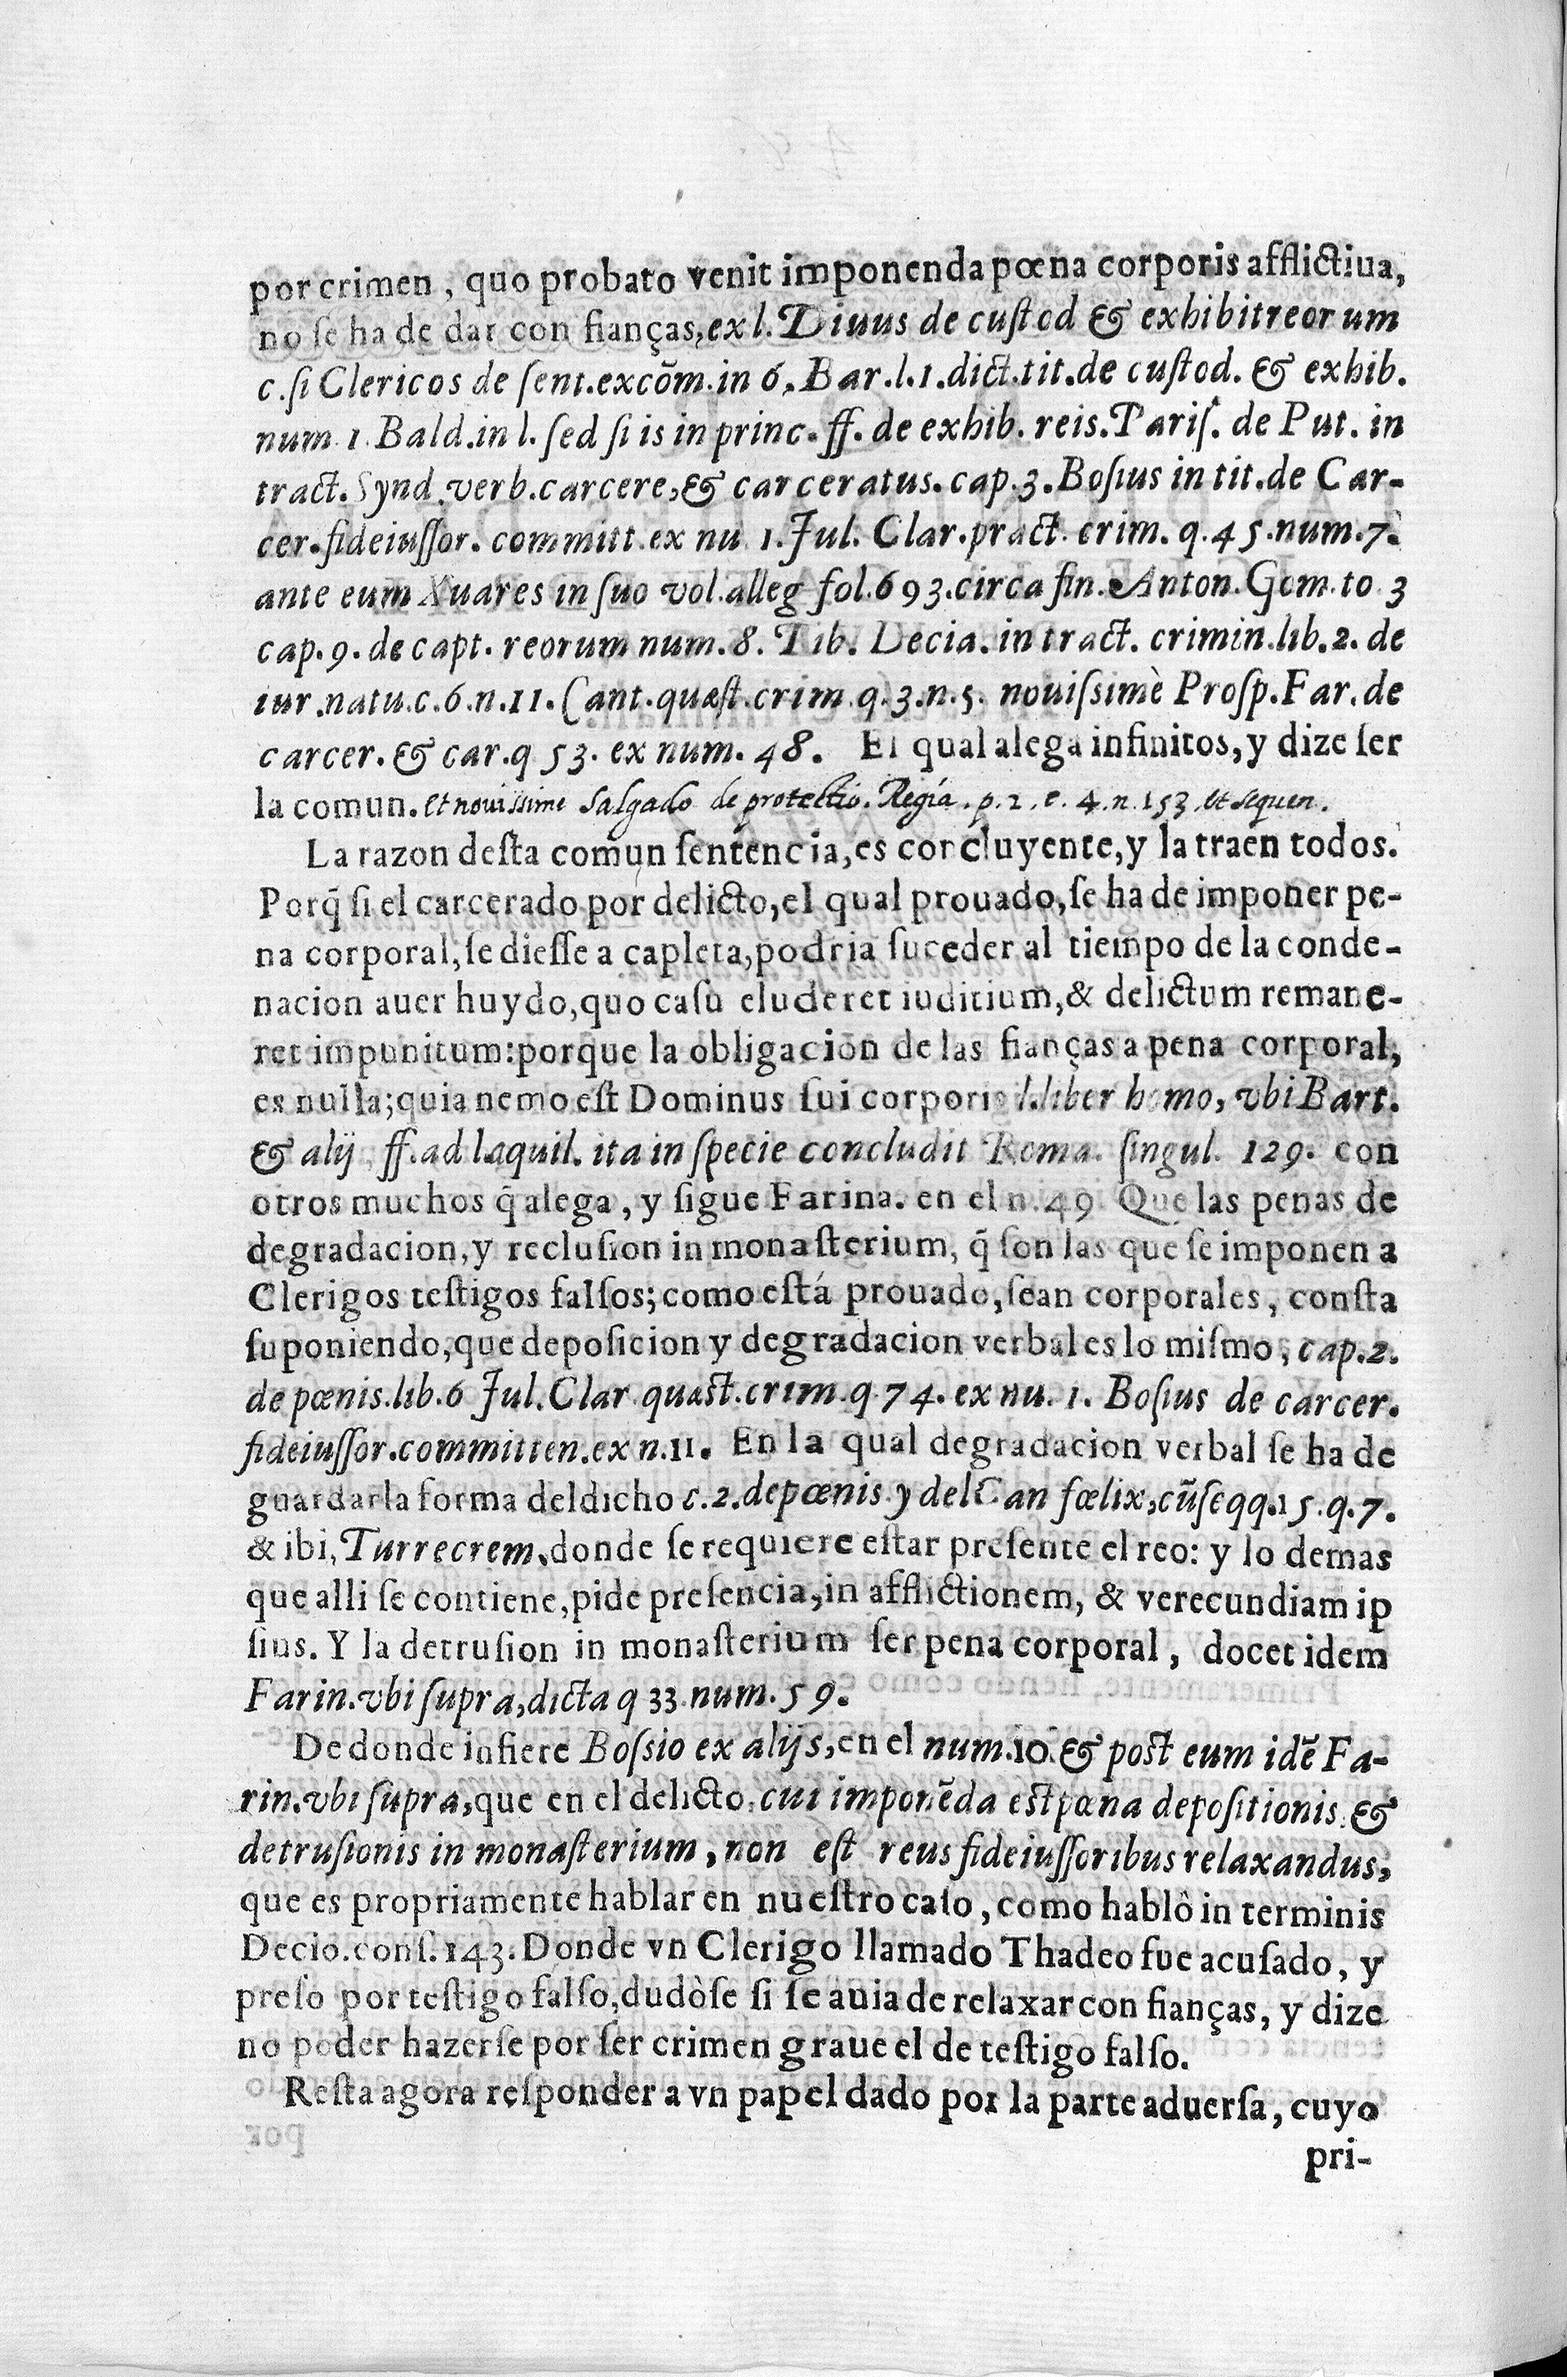 por crimen, quo probato venit imponenda pœna corporis afflictiua,
no ſe ha de dar con fianças, ex l. Diuus de cuſtod & exhibit reorum
c. ſi Clericos de ſent. excõm. in 6, Bar. l. 1. dict. tit. de cuſtod. & exhib.
num. 1. Bald. in l. ſed ſi is in princ. ff. de exhib. reis. Pariſ. de Put. in
tract. Synd. verb. carcere, & carceratus. cap. 3. Boſius in tit. de Car-
cer. fideiuſſor. committ. ex nu. 1. Jul. Clar. pract. crim. q. 45. num. 7.
ante eum Xuares in ſuo vol. alleg fol. 693. circa fin. Anton. Gom. to 3
cap. 9. de capt. reorum num. 8. Tib. Decia. in tract. crimin. lib. 2. de
iur. natu. c. 6. n. 11. Cant. quæſt. crim. q. 3. n. 5. nouiſsimè Proſp. Far. de
carcer. & car. q 53. ex num. 48. El qual alega infinitos, y dize ſer
la comun. et nouissime Salgado de protectio. Regia. p. 2. c. 4. n. 153. et sequen.
La razon deſta comun ſentencia, es concluyente, y la traen todos.
Porq̃ ſi el carcerado por delicto, el qual prouado, ſe ha de imponer pe-
na corporal, ſe dieſſe a capleta, podria ſuceder al tiempo de la conde-
nacion auer huydo, quo caſu eluderet iuditium, & delictum remane-
ret impunitum: porque la obligacion de las fianças a pena corporal,
es nulla; quia nemo eſt Dominus ſui corporis l. liber homo, vbi Bart.
& alij ff. ad l. aquil. ita in ſpecie concludit Roma. ſingul. 129. con
otros muchos q̃ alega, y ſigue Farina. en el n. 49 Que las penas de
degradacion, y recluſion in monaſterium, q̃ ſon las que ſe imponen a
Clerigos teſtigos falſos; como eſtá prouado, ſean corporales, conſta
ſuponiendo, que depoſicion y degradacion verbal es lo miſmo, cap. 2.
de pœnis. lib. 6 Jul. Clar. quæſt. crim. q 74. ex nu. 1. Boſius de carcer.
fideiuſſor. committen. ex n. 11. En la qual degradacion verbal ſe ha de
guardar la forma del dicho c. 2. de pœnis y del Can fœlix, cũ ſeqq. 15. q. 7.
& ibi, Turrecrem, donde ſe requiere eſtar preſente el reo: y lo demas
que alli ſe contiene, pide preſencia, in afflictionem, & verecundiam ip
ſius. Y la detruſion in monaſterium ſer pena corporal, docet idem
Farin. vbi ſupra, dicta q 33. num. 59.
De donde infiere Boſsio ex alijs, en el num. 10. & poſt eum idẽ Fa-
rin. vbi ſupra, que en el delicto, cui imponẽda eſt pœna depoſitionis. &
detruſionis in monaſterium, non eſt reus fideiuſſoribus relaxandus,
que es propriamente hablar en nueſtro caſo, como hablò in terminis
Decio. conſ. 143. Donde vn Clerigo llamado Thadeo fue acuſado, y
preſo por teſtigo falſo, dudòſe ſi ſe auia de relaxar con fianças, y dize
no poder hazerſe por ſer crimen graue el de teſtigo falſo.
Reſta agora reſponder a vn papel dado por la parte aduerſa, cuyo
pri-